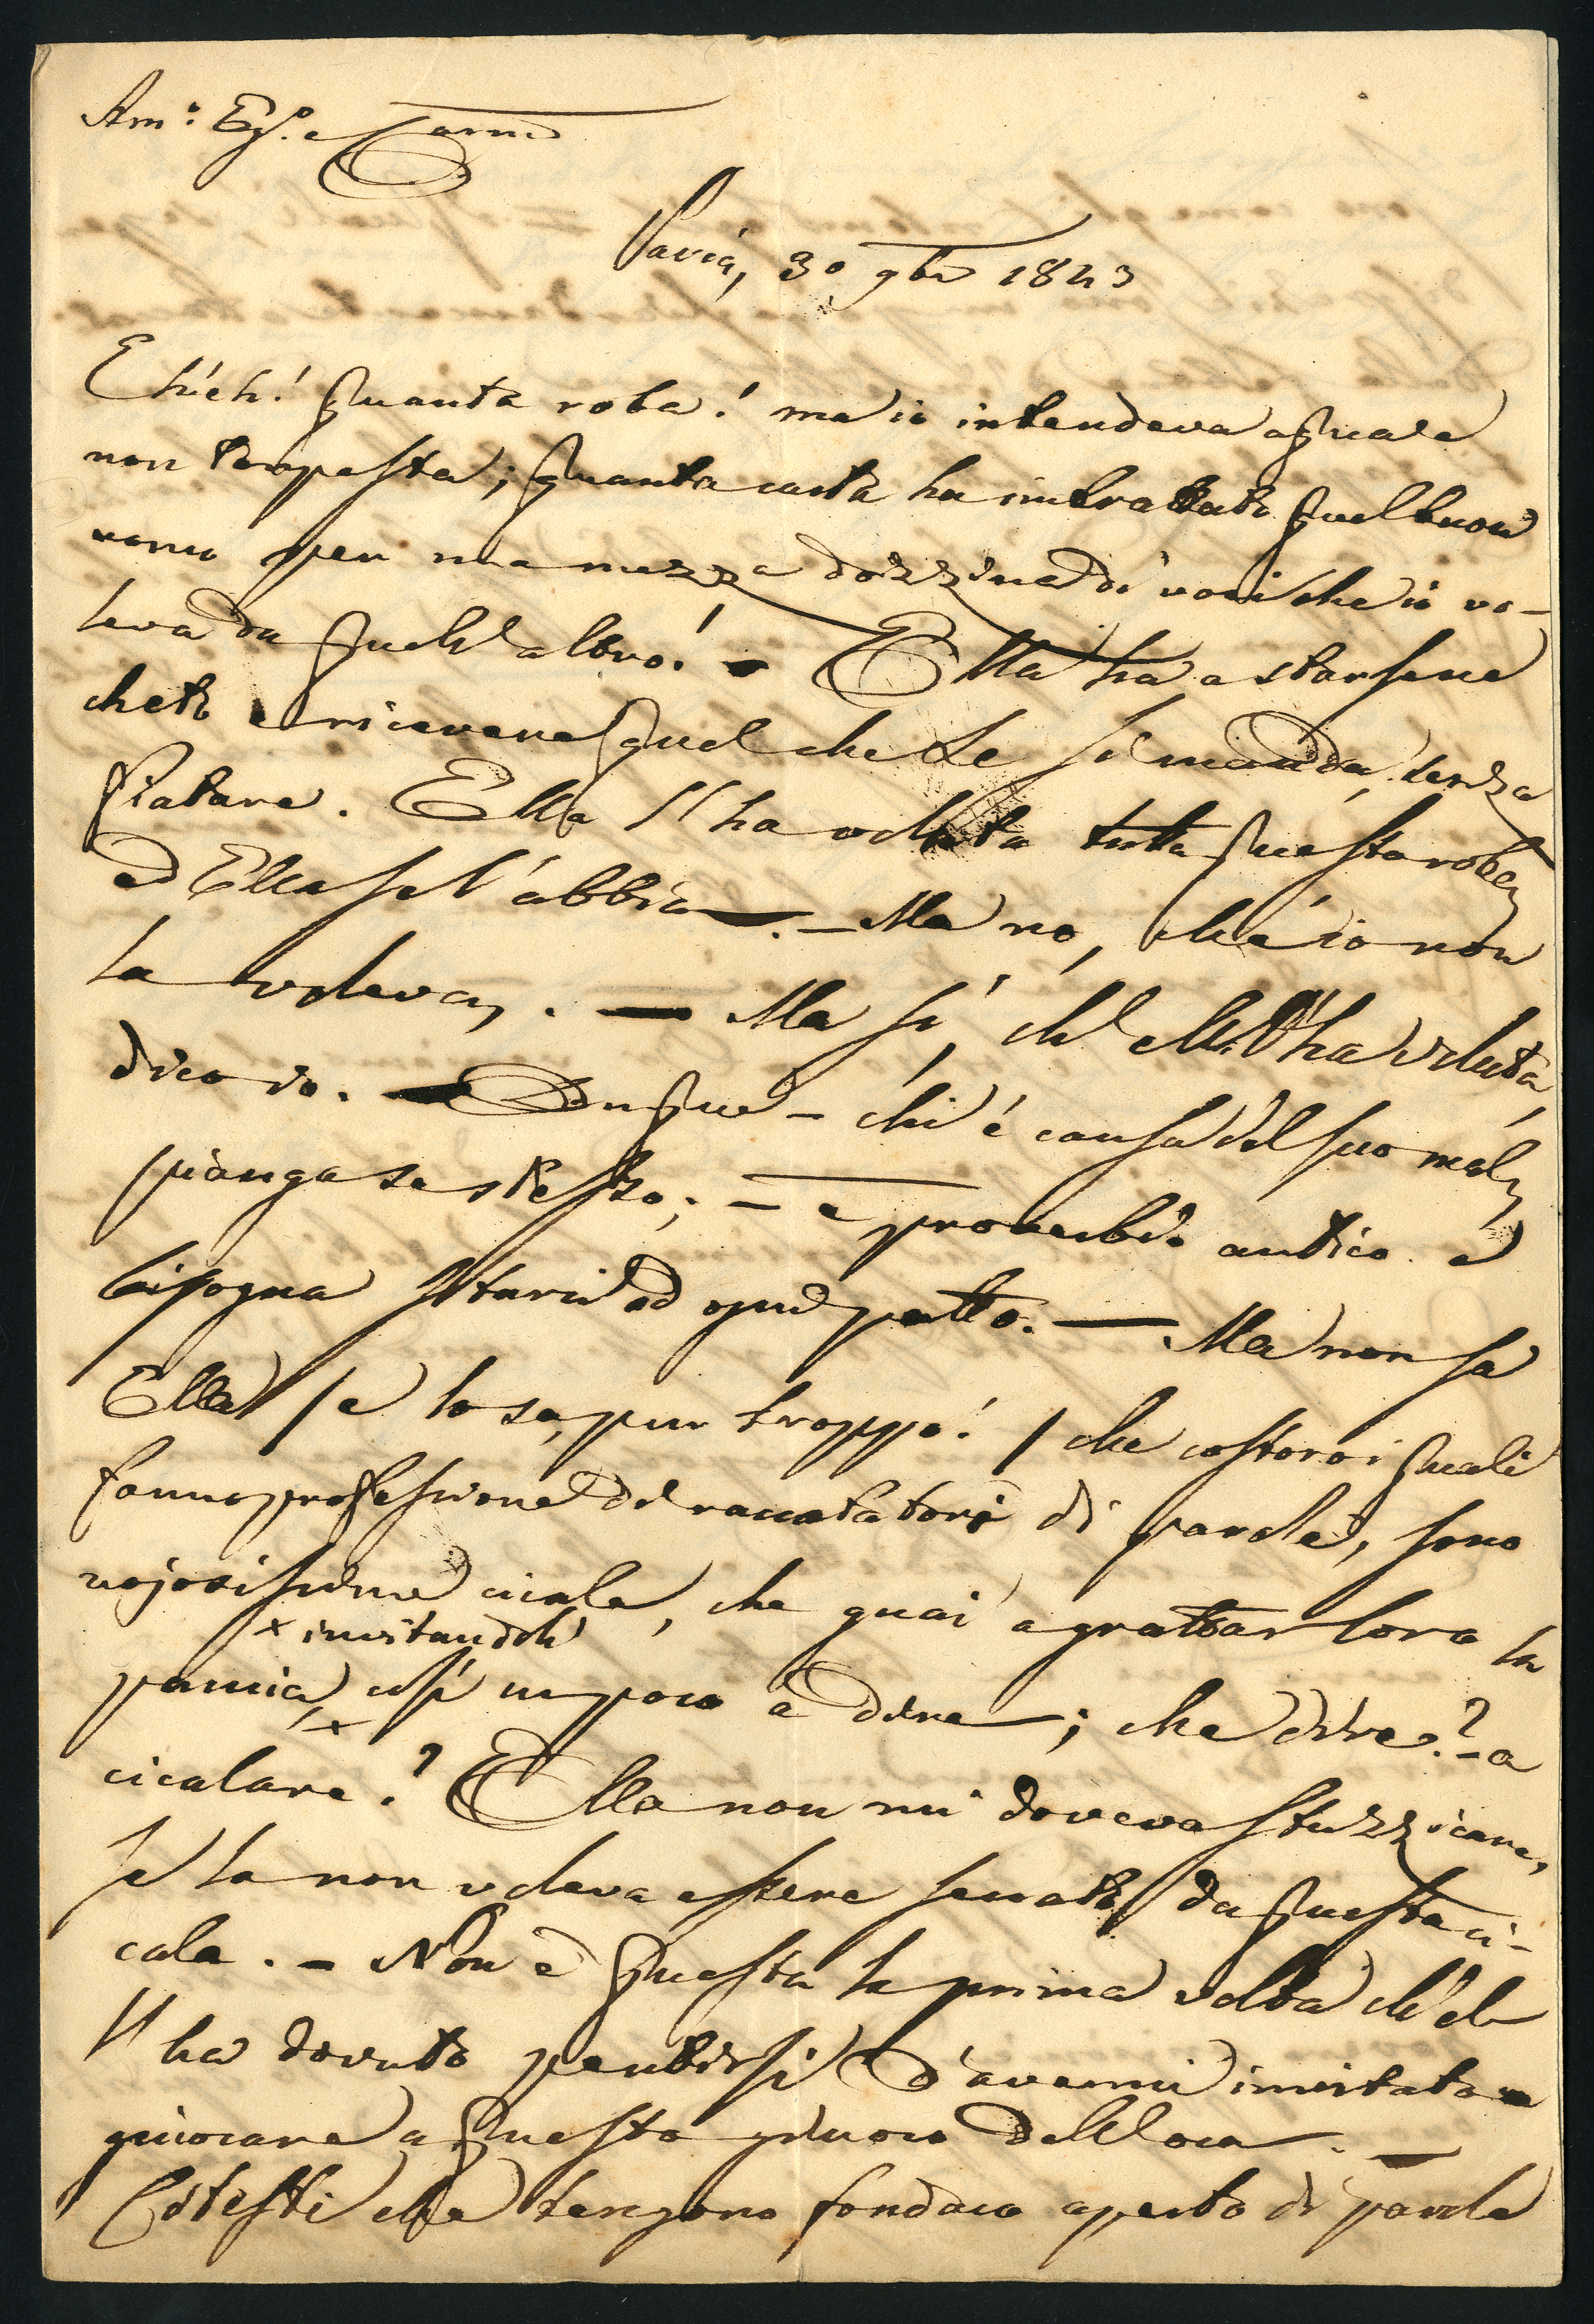 Am: Eg.º e Carmo
Pavia, 30 9bre 1843
Eh! eh! quanta roba! ma io intendeva acqua e
non tempesta; quanta carta ha imbrattato quel buon
uomo per una mezza dozzina di voci che io vo-
leva da quell'altro! – Ella ha a starsene
cheto e ricevere quel che Le si manda, senza
fiatare. Ella l'ha voluta tutta questa roba,
ed Ella se l'abbia. – Ma no, ché io non
la voleva. – Ma sì, ch'ella l'ha voluta,
dico io. – Dunque – chi è causa del suo mal,
pianga se stesso; – è proverbio antico e
bisogna starci ad ogni patto. – Ma non sa
Ella / e lo sa, pur troppo! / che costoro i quali
fanno professione di raccatatori di parole, sono
nojosissime cicale, che guai a grattar loro la
x invitandoli
pancia, x così un poco a dire; che dire? – a
cicalare? Ella non mi doveva stuzzicare,
se la non voleva essere seccato da questa ci-
cala. – Non è questa la prima volta ch'el-
l'ha dovuto pentirsi d'avermi invitato a
giuocare a questo giuoco dell'oca. –
Cotesti che tengono fondaco aperto di parole